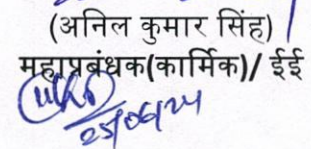 (अनिल कुमार सिंह)
महाप्रबंधक(कार्मिक)/ ईई
25/06/24